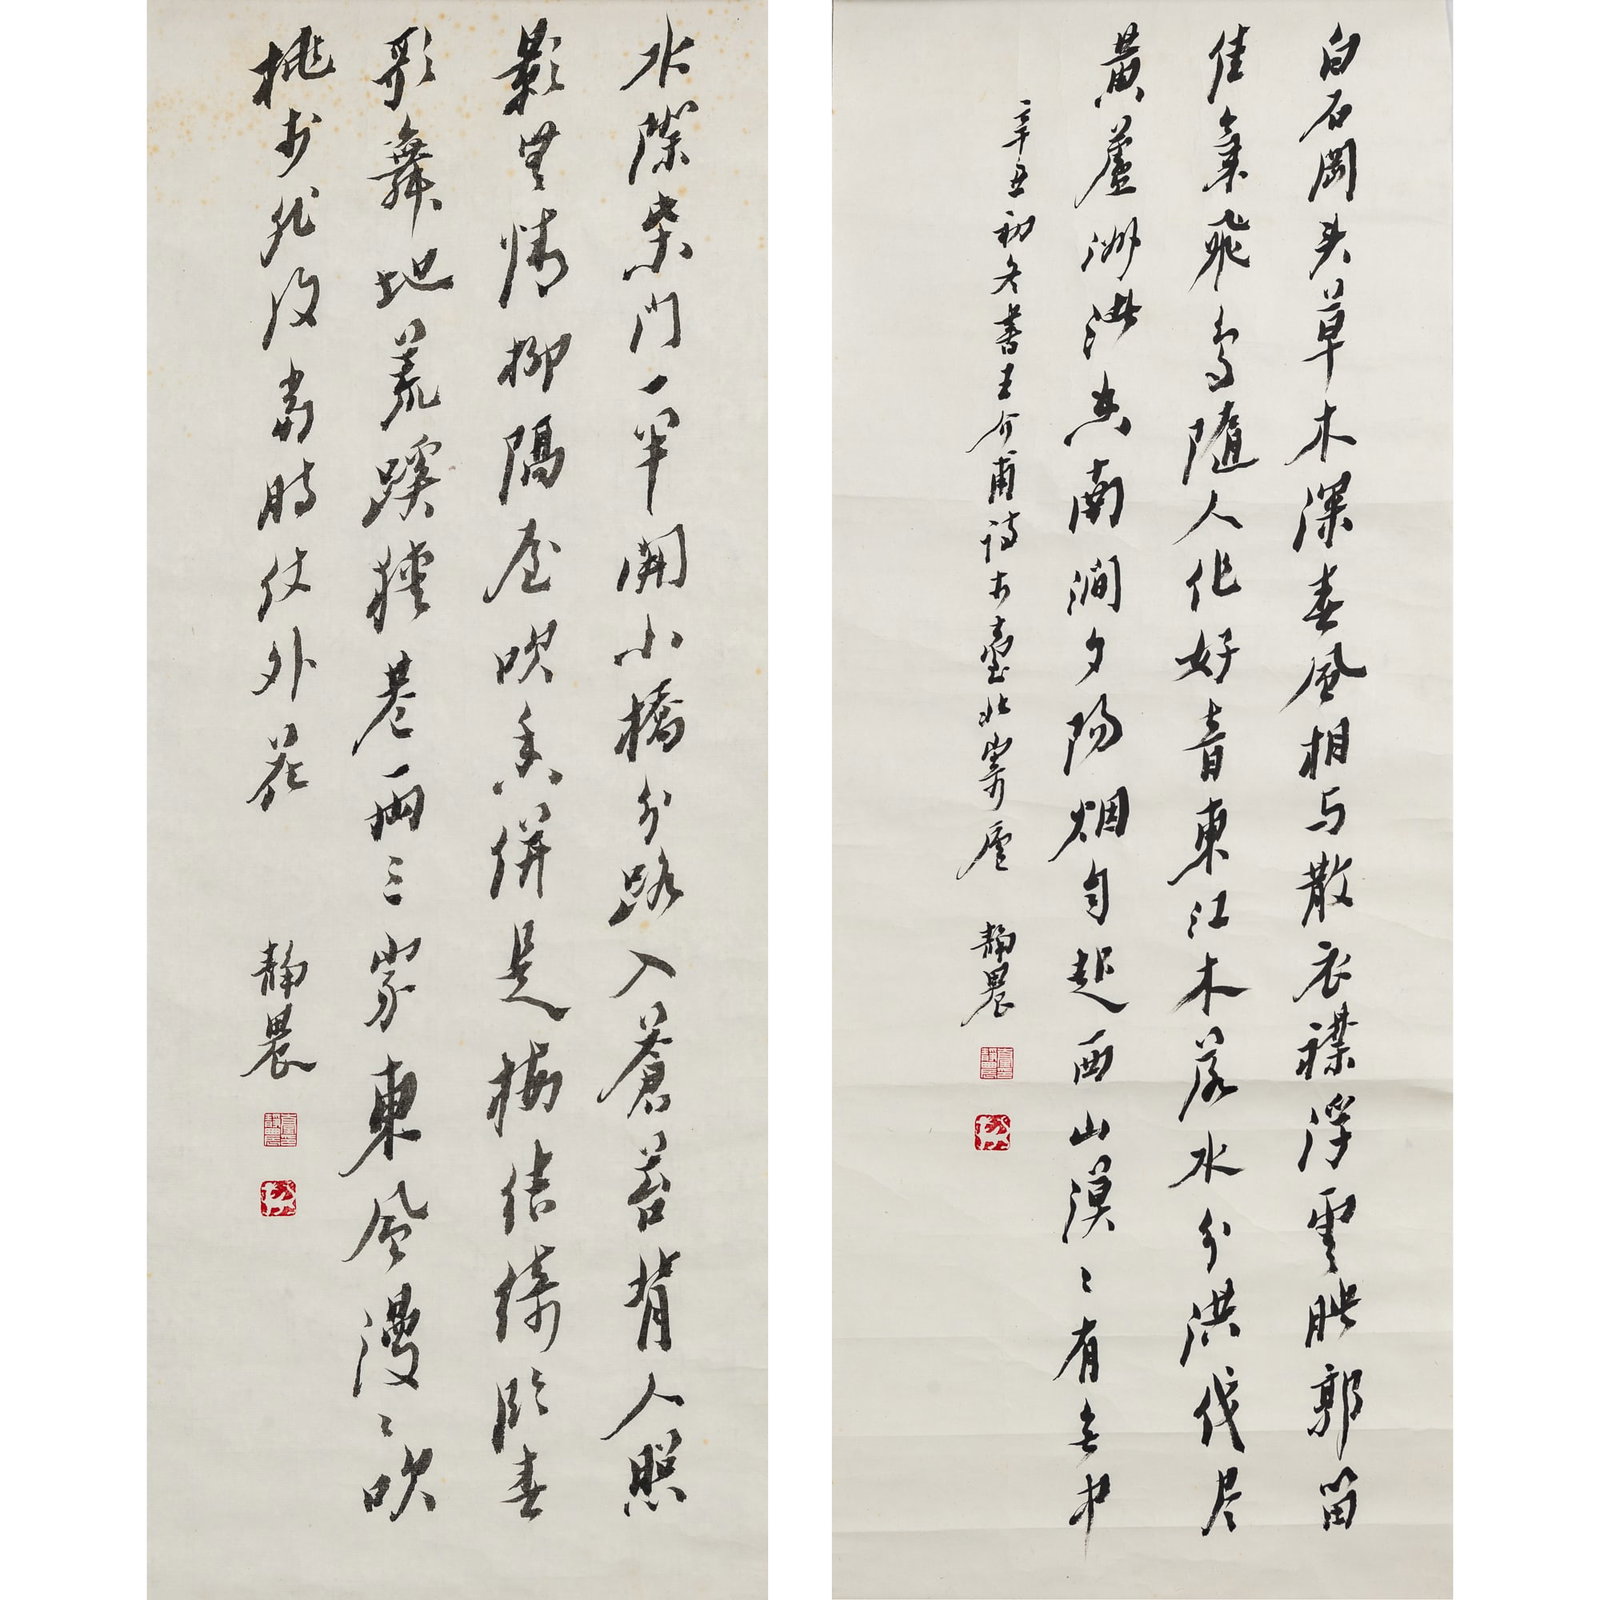 白石岡头草木深春風相与散衣襟浮雲映郭留
佳氣飛鳥隨人作好音東江木落水分洪伐尽
黃蘆洲渚空南澗夕陽烟自起西山漠〻有無中
辛丑初冬書王介甫詩于臺北寄廬 靜農
水際柴門一半開小橋分路入蒼苔背人照
影無情柳隔屋吹香併是梅結綺臨春
歌舞地荒蹊狹巷一兩三家東風漫〻吹
桃李非復當時仗外花 靜農